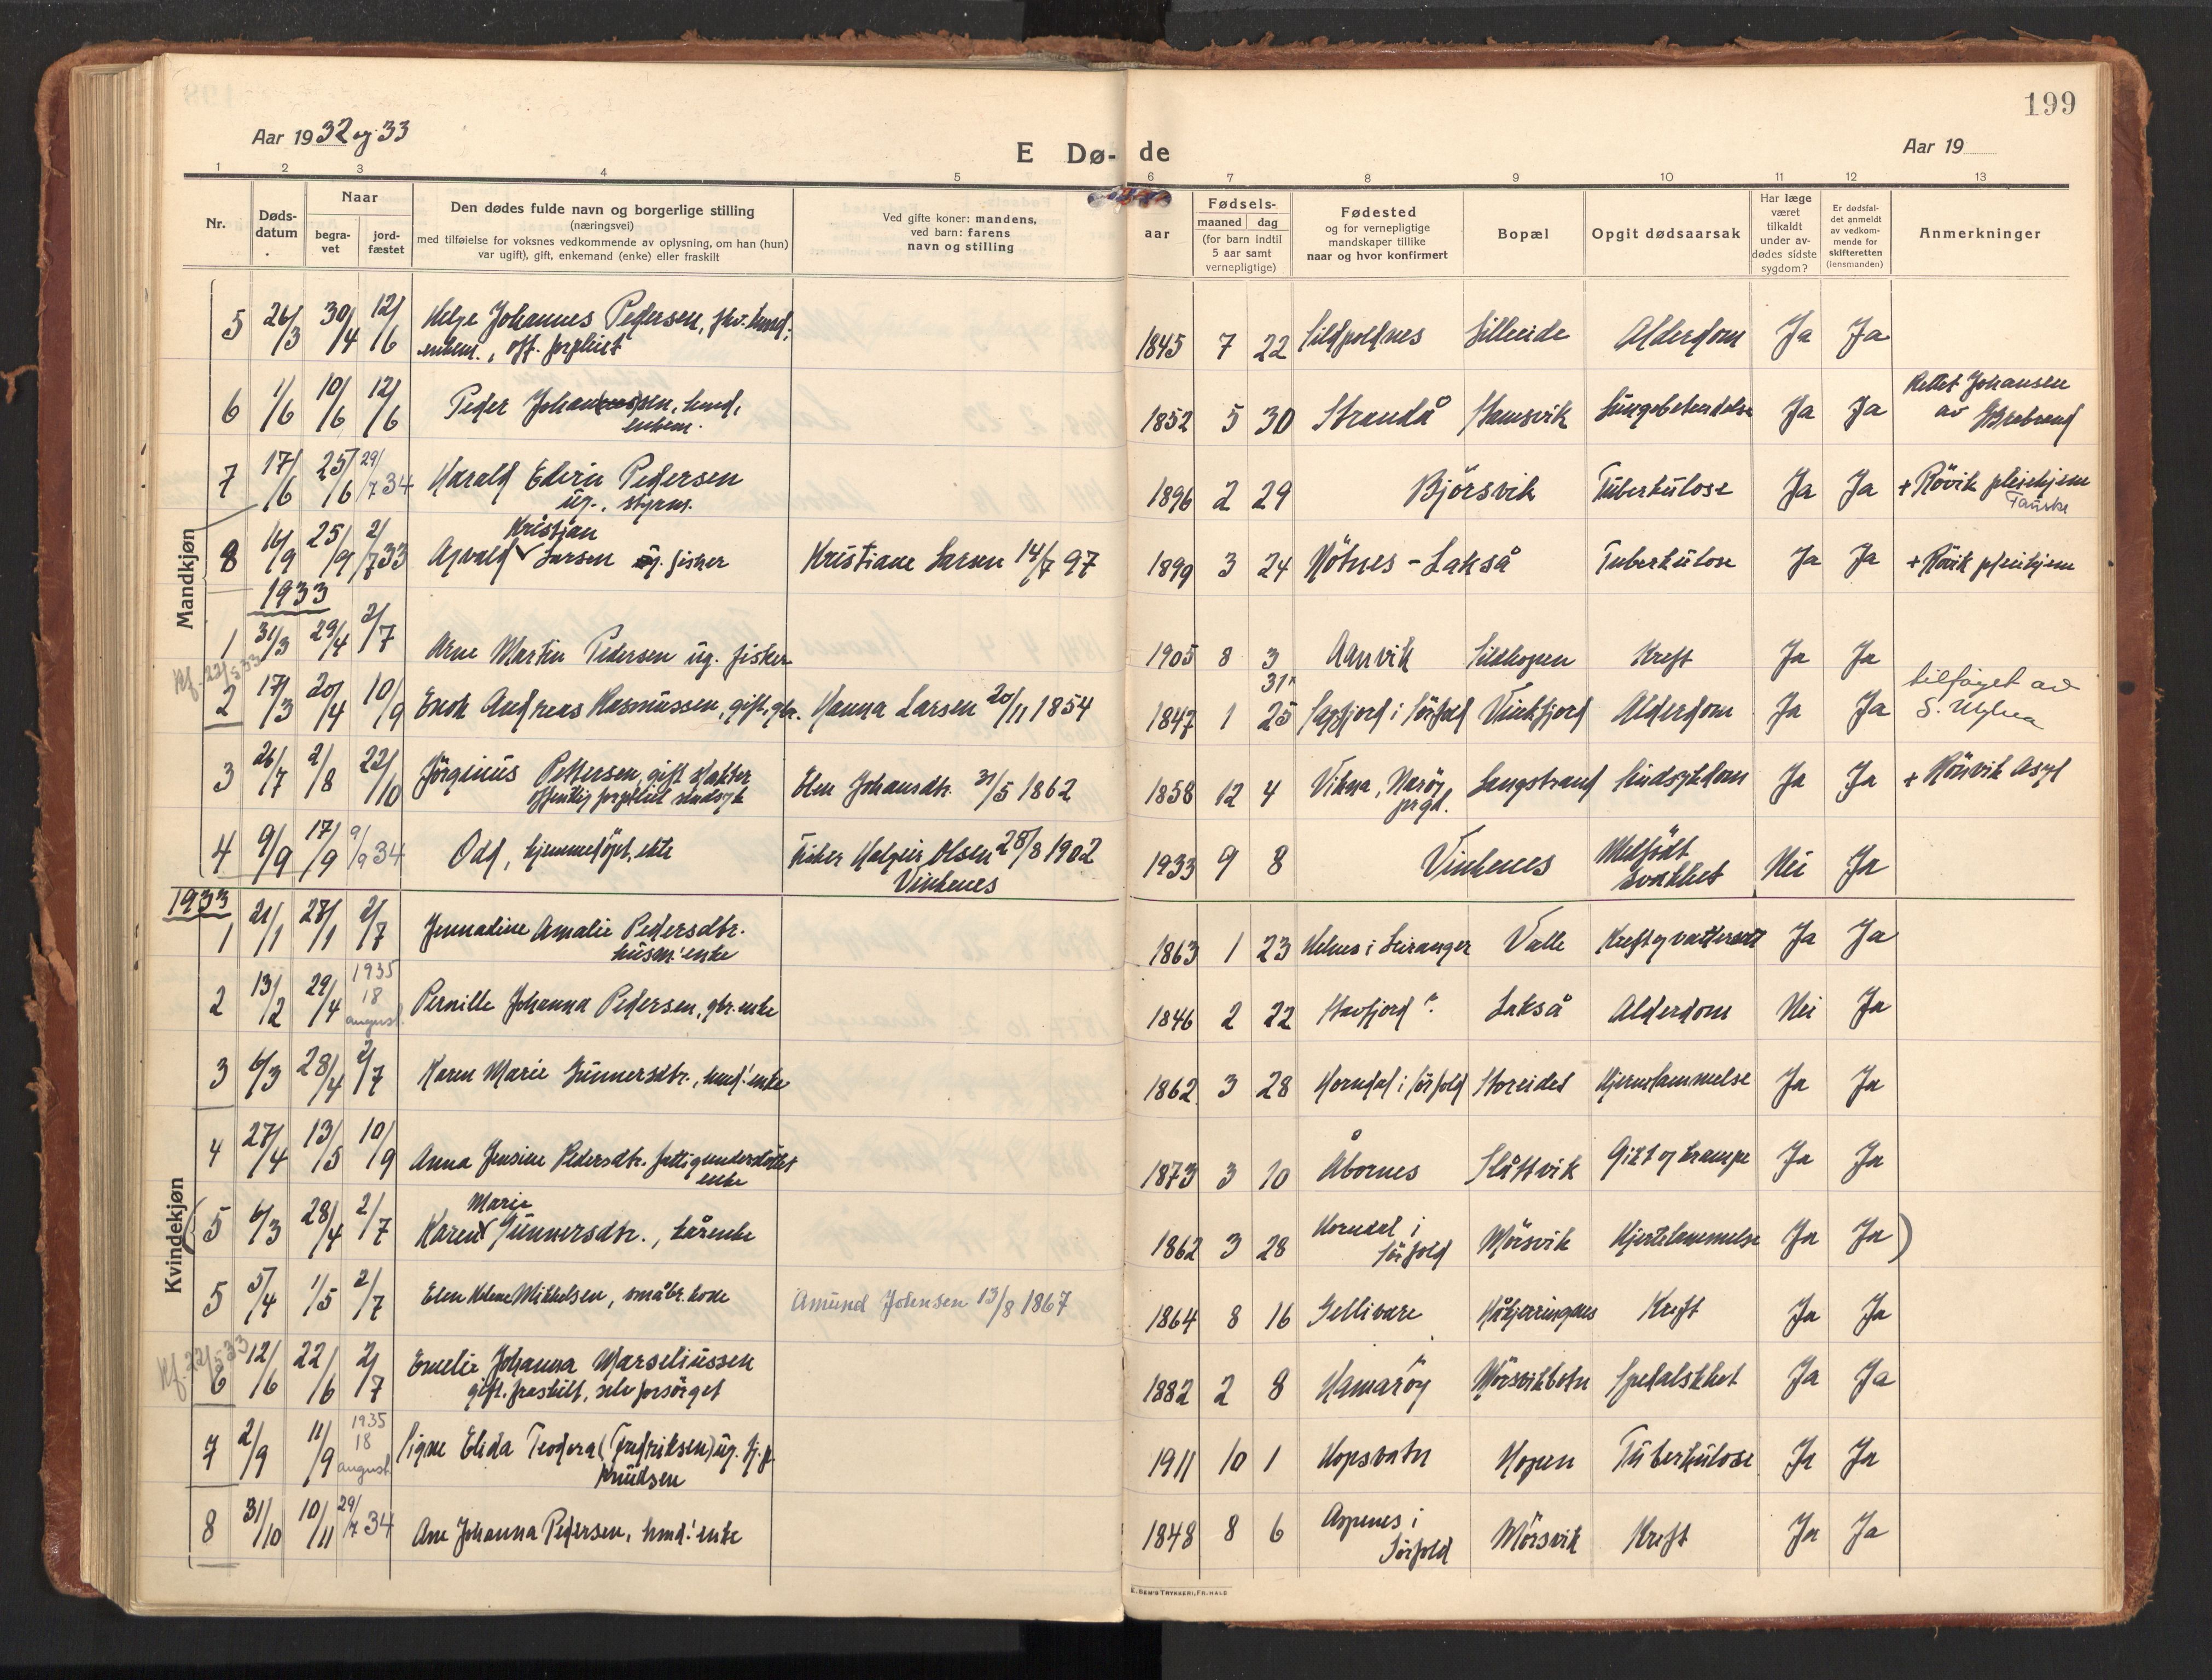 199
Aar 1932 og 33
E Dø-
de
Aar 19
1 2 3 4 5 6 7 8 9 10 11 12 13
Nr.
Døds-
datum
Naar
begra-
vet
jord-
fæstet
Den dødes fulde navn og borgerlige stilling
(næringsvei)
med tilføielse for voksnes vedkommende av oplysning, om han (hun)
var ugift), gift, enkemand (enke) eller fraskilt
Ved gifte koner: mandens,
ved barn: farens
navn og stilling
aar
Fødsels-
maaned dag
(for barn indtil
5 aar samt
vernepligtige)
Fødested
og for vernepligtige
mandskaper tillike
naar og hvor konfirmert
Bopæl
Opgit dødsaarsak
Har læge
været
tilkaldt
under av-
dødes sidste
sygdom?
Er dødsfal-
det anmeldt
av vedkom-
mende for
skifteretten
(lensmanden)
Anmerkninger
Mandkjøn
5 26/3 30/4 12/6 Helge Johannes Pedersen,
enkem., off. forpleiet
1845 7 22 Alderdom Ja Ja
6 1/6 10/6 12/6 Peder
enkem.
1852 5 30 Strandå Lungebetendelse Ja Ja Rettet Johansen
av
7 17/6 25/6 29/7 34 Harald Edvin Pedersen
ug., styrm.
1896 2 29 Bjørsvik Tuberkulose Ja Ja + Røvik pleiehjem
Fauske
Kristian
8 16/9 25/9 2/7 33 Larsen ug. fisker Kristiane Larsen 14/7 97 1899 3 24 Nötnes - Lakså Tuberkulose Ja Ja + Røvik pleiehjem
1933
1 31/3 29/4 2/7 Arne Martin Pedersen ug. fisker 1905 8 3 Aanvik Sildhopen Kreft Ja Ja
Kf. 22/5 33
31
2 17/3 20/4 10/9 Enok Andreas Rasmussen, gift, gbr. Hanna Larsen 20/11 1854 1847 1 25 i Sörfold Vinkfjord Alderdom Ja Ja tilføyet av
3 26/7 2/8 22/10 Jörginus Pettersen, gift
offentlig forpleiet sindssyk
Elen Johansdtr. 31/5 1862 1858 12 4 Vikna, Naröy
prgd.
Langstrand Sindsykdom Ja Ja + Rönvik Asyl
4 9/9 17/9 9/9 34 Odd, hjemmedöpt, ekte Fisker Halgeir Olsen 28/8 1902
Vinkenes
1933 9 8 Vinkenes Medfödt
svakhet
Nei Ja
1933
Kvindekjøn
1 21/1 28/1 2/7 Jennadine Amalie Pedersdtr.
husm. enke
1863 1 23 Helnes i Leiranger Valle Kreft og vattersott Ja Ja
1935
2 13/2 29/4 18
august
Pernille Johanna Pedersen, gbr. enke 1846 2 22 Lakså Alderdom Nei Ja
3 6/3 28/4 2/7 Karen Marie Gunnersdtr., enke 1862 3 28 Horndal i Sörfold Storeidet Ja Ja
4 27/4 13/5 10/9 Anna Jensine Pedersdtr. fattigunderstöttet
enke
1873 3 10 Åbornes Slåttvik Gikt og krampe Ja Ja
Marie
(5 6/3 28/4 2/7 Karen Gunnersdtr., kårenke 1862 3 28 Horndal i
Sörfold
Mörsvik Hjertelammelse Ja Ja)
5 5/4 1/5 2/7 Elen Helene Mikkelsen, småbr. kone Amund Johnsen 13/8 1867 1864 8 16 Gellivare Håkjerringnes Kreft Ja Ja
Kf. 22/5 33
6 12/6 22/6 2/7 Emelie Johanna Marseliussen
gift, fraskilt, selvforsörget
1882 2 8 Hamaröy Mörsvikbotn Spedalskhet Ja Ja
1935
7 2/9 11/9 18
august
Signe Elida Teodora (Fredriksen) ug.
Knudsen
1911 10 1 Hopsvatn Hopen Tuberkulose Ja Ja
8 31/10 10/11 29/7 34 Ane Johanna Pedersen, enke 1848 8 6 Aspenes i
Sörfold
Mörsvik Kreft Ja Ja
E. SEM'S TRYKKERI, FR.HALD